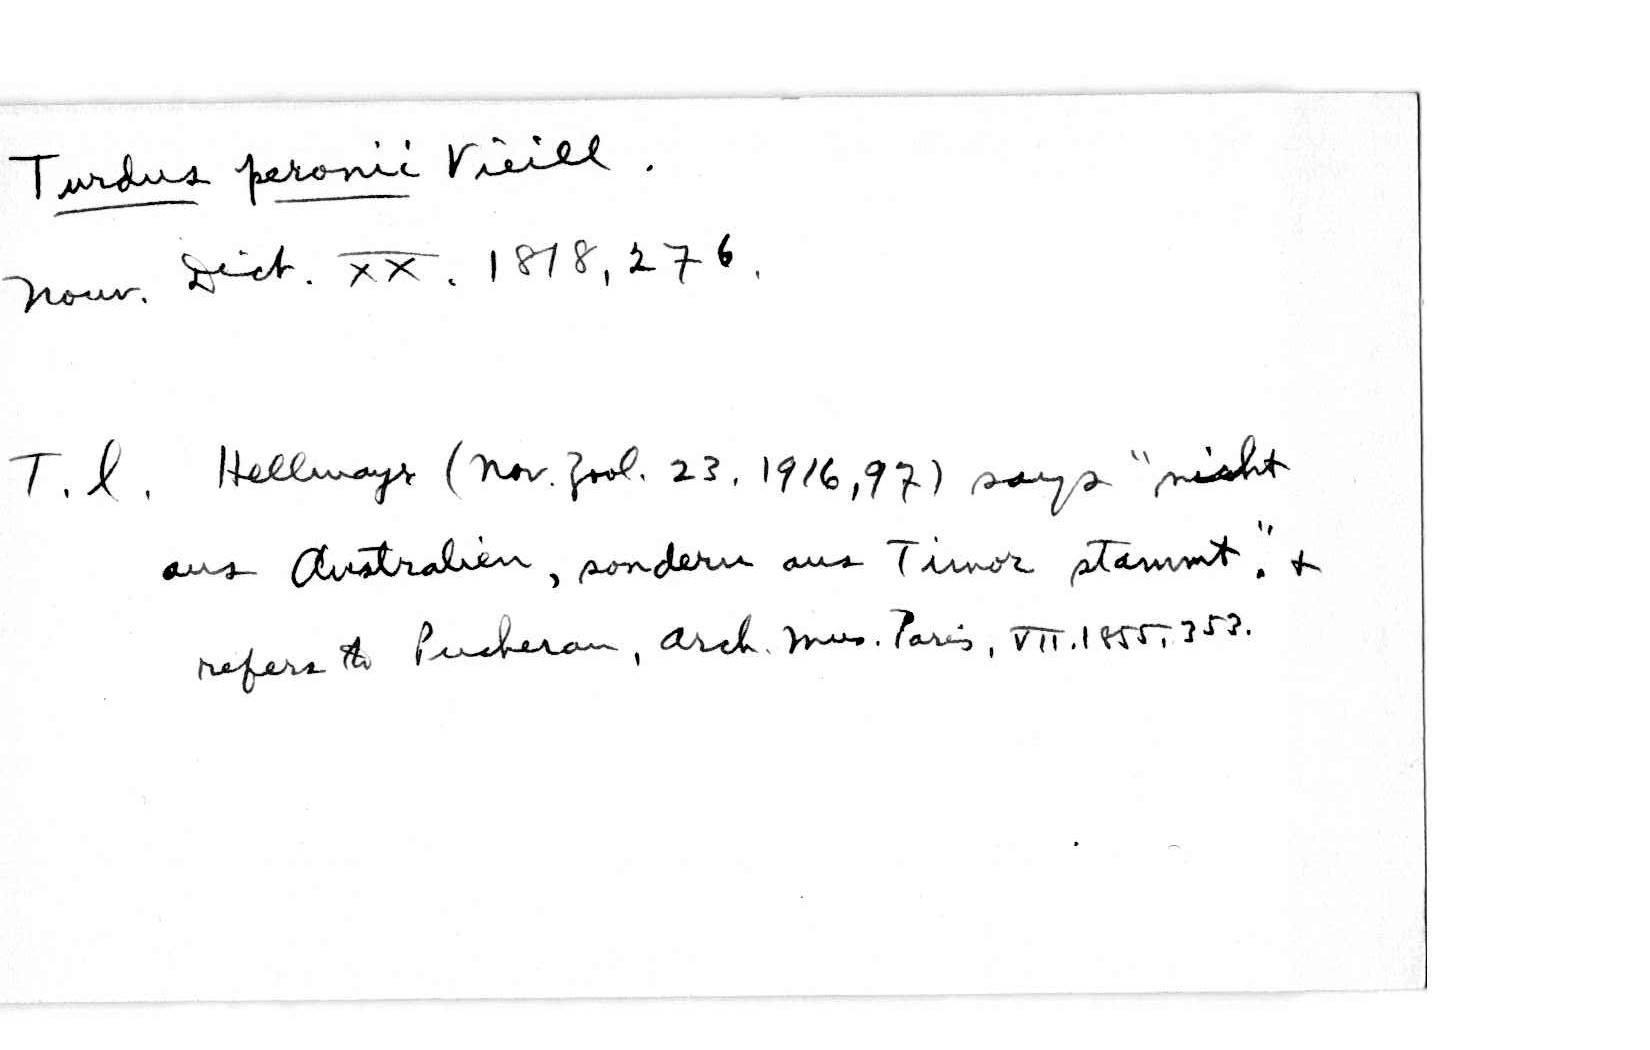 Turdus peronii Vieill.
Nouv. Dict. XX. 1818, 276.
T. l. Hellmayr (Nov. Zool. 23. 1916, 97) says "nicht
aus Australien, sondern aus Timor stammt." &
refers to Pucheran, Arch. Mus. Paris, VII. 1855, 353.